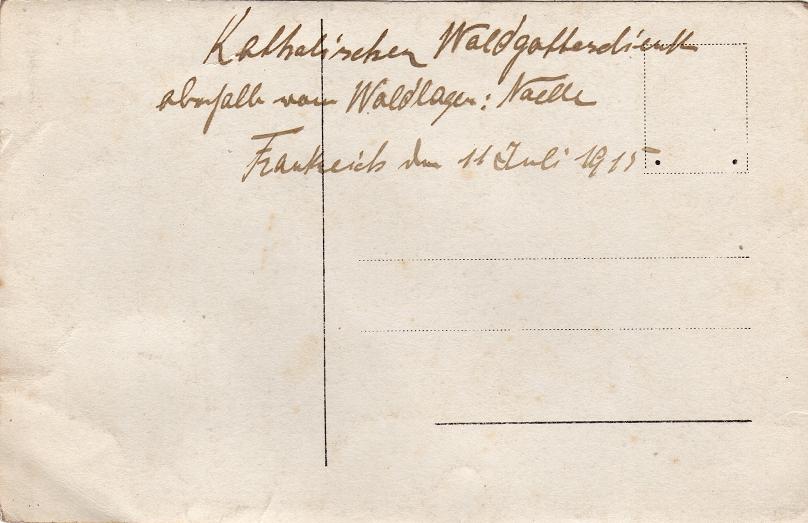 Katholischer Waldgottesdienst
oberhalb vom Waldlager:
Frankreich den 11 Juli 1915